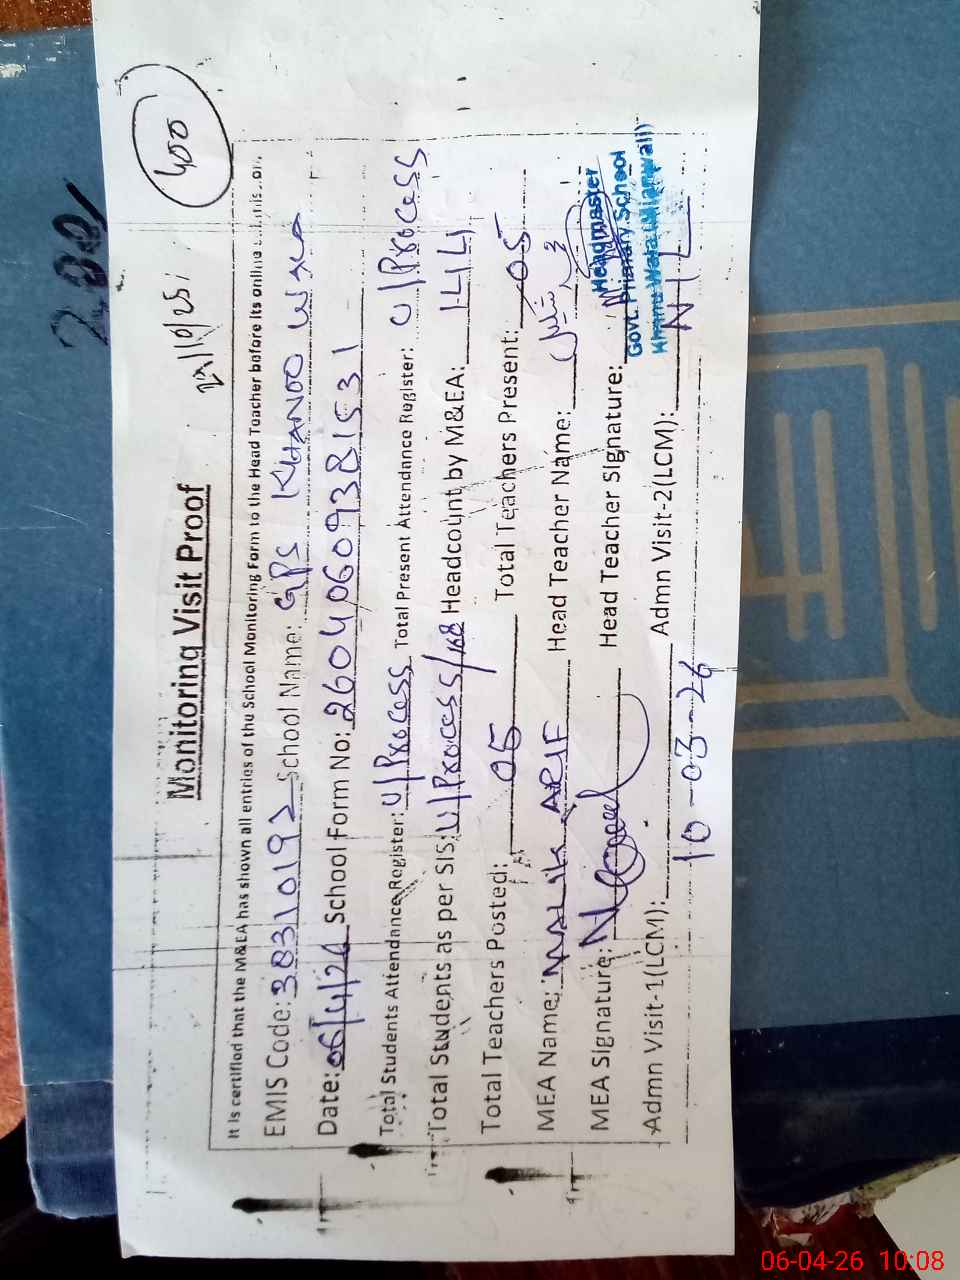 400
200/
Monitoring Visit Proof
It is certified that the M&EA has shown all entries of the School Monitoring Form to the Head Teacher before its online
EMIS Code: 38310192 School Name: GPS KHANOO
Date: 06/4/26 School Form No: 26040609381531
Total Students Attendance Register: U/Process Total Present Attendance Register: U/Process
Total Students as per SIS: U/Process/168 Headcount by M&EA: 144
Total Teachers Posted: 05 Total Teachers Present: 05
MEA Name: MALIK ARIF Head Teacher Name:
MEA Signature: Head Teacher Signature:
Headmaster
Govt. Primary School
Khanu Wala (Mianwali)
Admn Visit-1(LCM): 10-03-26 Admn Visit-2(LCM): NIL
06-04-26 10:08